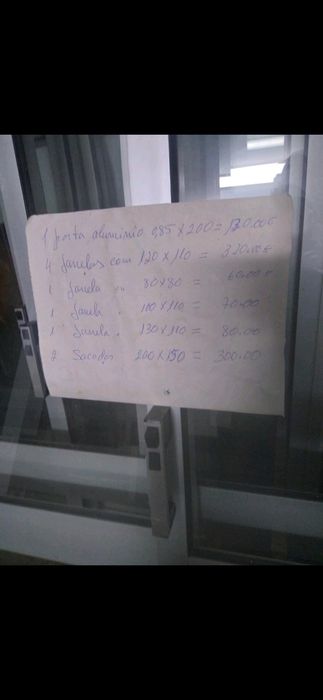 1 porta aluminio 0,85 X 200 = 120.00€
4 Janelas com 120 X 110 = 320.00€
1 Janela " 80 X 80 = 60.00€
1 Janela " 100 X 110 = 70.00
1 Janela " 130 X 110 = 80.00
2 Sacodas 200 X 150 = 300.00